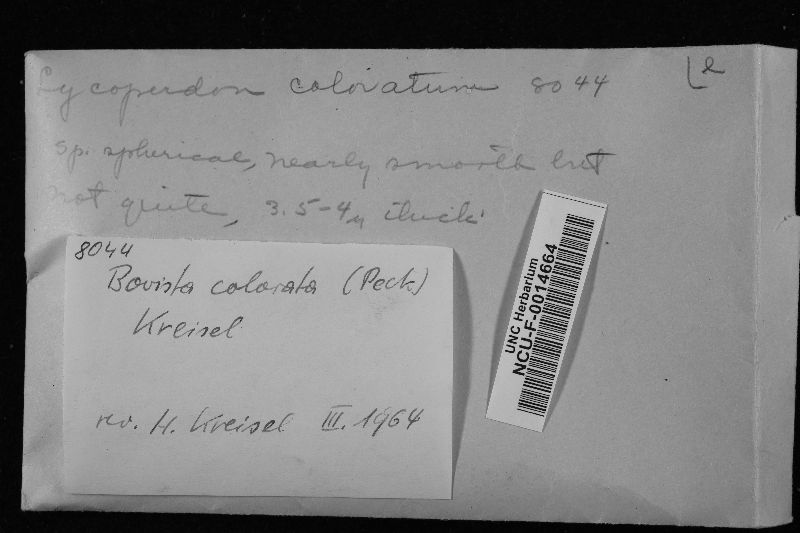 Lycoperdon coloratum 8044
sp. spherical, nearly smooth but
not quite, 3.5-4µ thick
8044
Bovista colorata (Peck)
Kreisel
rev. H. Kreisel III. 1964
UNC Herbarium
NCU-F-0014664